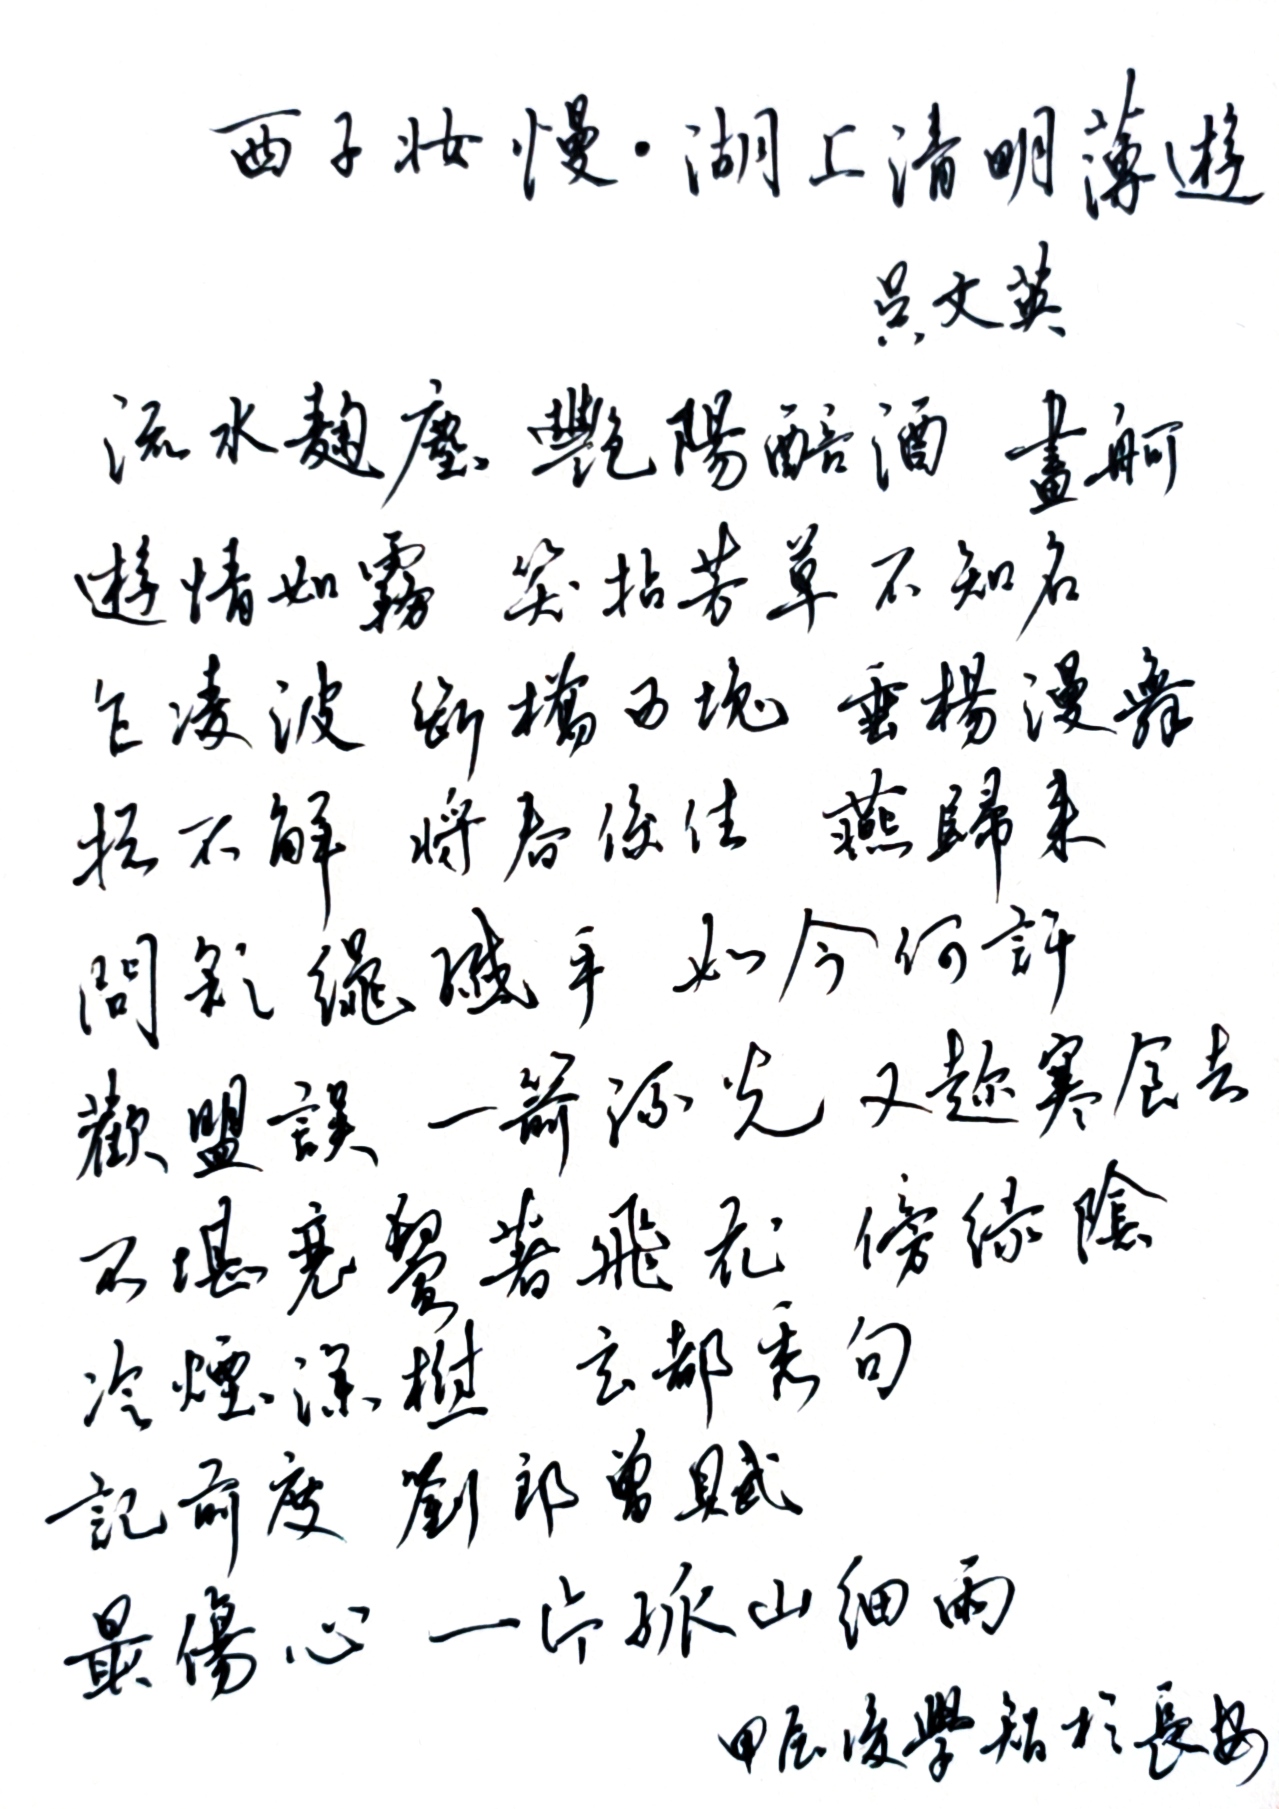 西子妆慢·湖上清明薄遊
吴文英
流水麴塵 艷陽醅酒 畫舸
遊情如霧 笑拈芳草不知名
乍凌波 斷橋西堍 垂楊漫舞
摠不解 將春係住 燕歸來
問彩繩纖手 如今何許
歡盟誤 一箭流光 又趂寒食去
不堪衰鬢著飛花 傍緑陰
冷煙深樹 玄都秀句
記前度 劉郎曾賦
最傷心 一片孤山細雨
甲辰後學智於長安